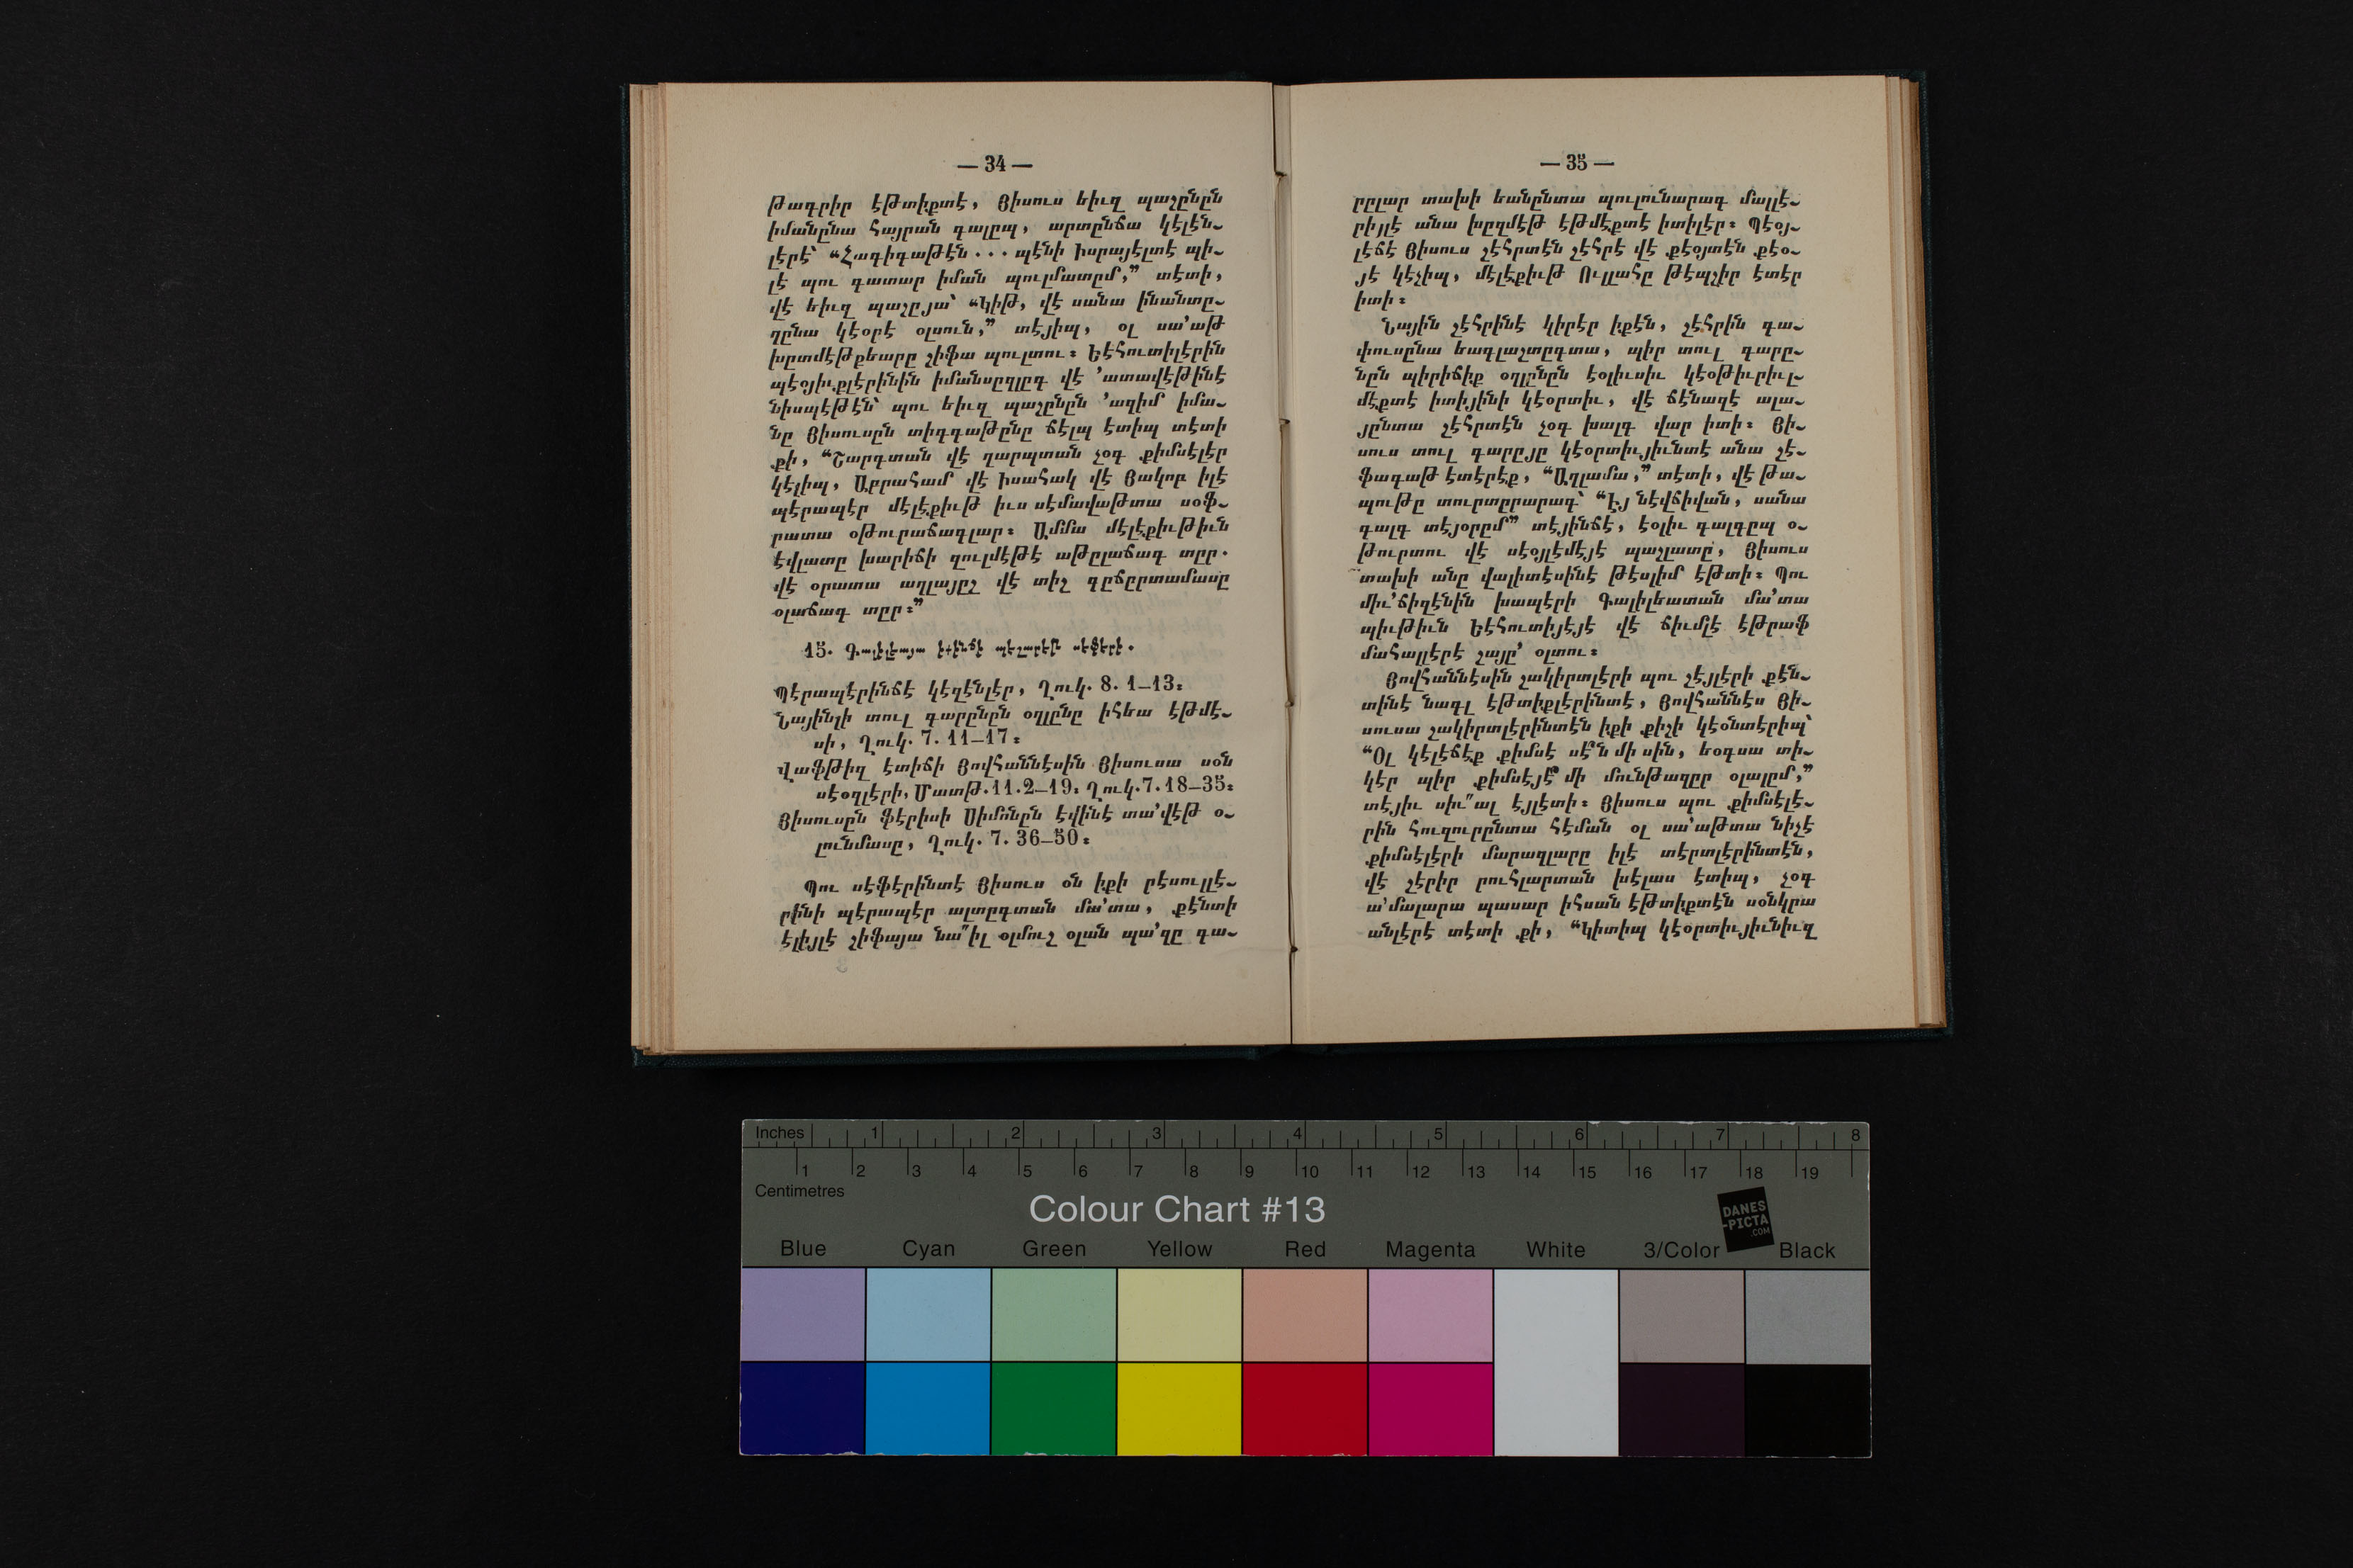 — 34 —
թագրիր էթտիքտէ, Յիսուս եիւզ պաշընըն
իմանընա հայրան գալըպ, արտընճա կէլէն֊
լէրէ՝ “Հագիգաթէն... պէնի Իսրայէլտէ պի֊
լէ պու գատար իման պուլմատըմ,” տէտի,
վէ եիւզ պաշըյա՝ “Կիթ, վէ սանա ինանտը֊
ղընա կէօրէ օլսուն,” տէյիպ, օլ սա՚աթ
խըտմէթքեարը շիֆա պուլտու։ Եէհուտիլէրին
պէօյիւքլէրինին իմանսըզլըգ վէ ՚ատավէթինէ
նիսպէթէն՝ պու եիւզ պաշընըն ՚ազիմ իմա֊
նը Յիսուսըն տիգգաթընը ճէլպ էտիպ տէտի
քի, “Շարգտան վէ ղարպտան չօգ քիմսէլէր
կէլիպ, Աբրահամ վէ Իսահակ վէ Յակոբ իլէ
պէրապէր մէլէքիւթ իւս սէմավաթտա սօֆ֊
րատա օթուրաճագլար։ Ամմա մէլէքիւթիւն
էվլատը խարիճի զուլմէթէ աթըլաճագ տըր.
վէ օրատա աղլայըշ վէ տիշ գըճըրտամասը
օլաճագ տըր։”
15. Գալիլեայա իքինճի պէշարէթ սէֆէրի.
Պէրապէրինճէ կէզէնլէր, Ղուկ. 8. 1–13։
Նայինլի տուլ գարընըն օղլընը իհեա էթմէ֊
սի, Ղուկ. 7. 11–17։
Վաֆթիզ էտիճի Յովհաննէսին Յիսուսա սօն
սէօզլէրի, Մատթ. 11. 2–19։ Ղուկ. 7. 18–35։
Յիսուսըն ֆէրիսի Սիմօնըն էվինէ տա՚վէթ օ֊
լունմասը, Ղուկ. 7. 36–50։
Պու սէֆէրինտէ Յիսուս օն իքի րէսուլլէ֊
րինի պէրապէր ալտըգտան մա՚տա, քէնտի
էլիյլէ շիֆայա նա՚՚իլ օլմուշ օլան պա՚զը գա֊
3
— 35 —
րըլար տախի եանընտա պուլունարագ մալլէ֊
րիյլէ անա խըզմէթ էթմէքտէ իտիլէր։ Պէօյ֊
լէճէ Յիսուս շէհրտէն շէհրէ վէ քէօյտէն քէօ֊
յէ կէչիպ, մէլէքիւթ Ուլլահը թէպշիր էտէր
իտի։
Նային շէհրինէ կիրէր իքէն, շէհրին գա֊
փուսընա եագլաշտըգտա, պիր տուլ գարը֊
նըն պիրիճիք օղլընըն էօլիւսիւ կէօթիւրիւլ֊
մէքտէ իտիյինի կէօրտիւ, վէ ճէնազէ ալա֊
յընտա շէհրտէն չօգ խալգ վար իտի։ Յի֊
սուս տուլ գարըյը կէօրտիւյիւնտէ անա շէ֊
ֆագաթ էտէրէք, “Աղլամա,” տէտի, վէ թա֊
պութը տուրտըրարագ՝ “Էյ նէվճիվան, սանա
գալգ տէյօրըմ” տէյինճէ, էօլիւ գալգըպ օ֊
թուրտու վէ սէօյլէմէյէ պաշլատը, Յիսուս
տախի անը վալիտէսինէ թէսլիմ էթտի։ Պու
միւ՚ճիզէնին խապէրի Գալիլեատան մա՚տա
պիւթիւն Եէհուտիյէյէ վէ ճիւմլէ էթրաֆ
մահալլէրէ շայը՚ օլտու։
Յովհաննէսին շակիրտլէրի պու շէյլէրի քէն֊
տինէ նագլ էթտիքլէրինտէ, Յովհաննէս Յի֊
սուսա շակիրտլէրինտէն իքի քիշի կէօնտէրիպ՝
“Օլ կէլէճէք քիմսէ սէ՞ն մի սին, եօգսա տի֊
կէր պիր քիմսէյէ՞ մի մունթազըր օլալըմ,”
տէյիւ սիւ՚՚ալ էյլէտի։ Յիսուս պու քիմսէլէ֊
րին հուզուրընտա հէման օլ սա՚աթտա նիչէ
քիմսէլէրի մարազլարը իլէ տէրտլէրինտէն,
վէ շէրիր րուհլարտան խէլաս էտիպ, չօգ
ա՚մալարա պասար իհսան էթտիքտէն սօնկրա
անլէրէ տէտի քի, “Կիտիպ կէօրտիւյիւնիւզ
Inches 1 2 3 4 5 6 7 8
1 2 3 4 5 6 7 8 9 10 11 12 13 14 15 16 17 18 19
Centimetres
Colour Chart #13
DANES
-PICTA
.COM
Blue Cyan Green Yellow Red Magenta White 3/Color Black